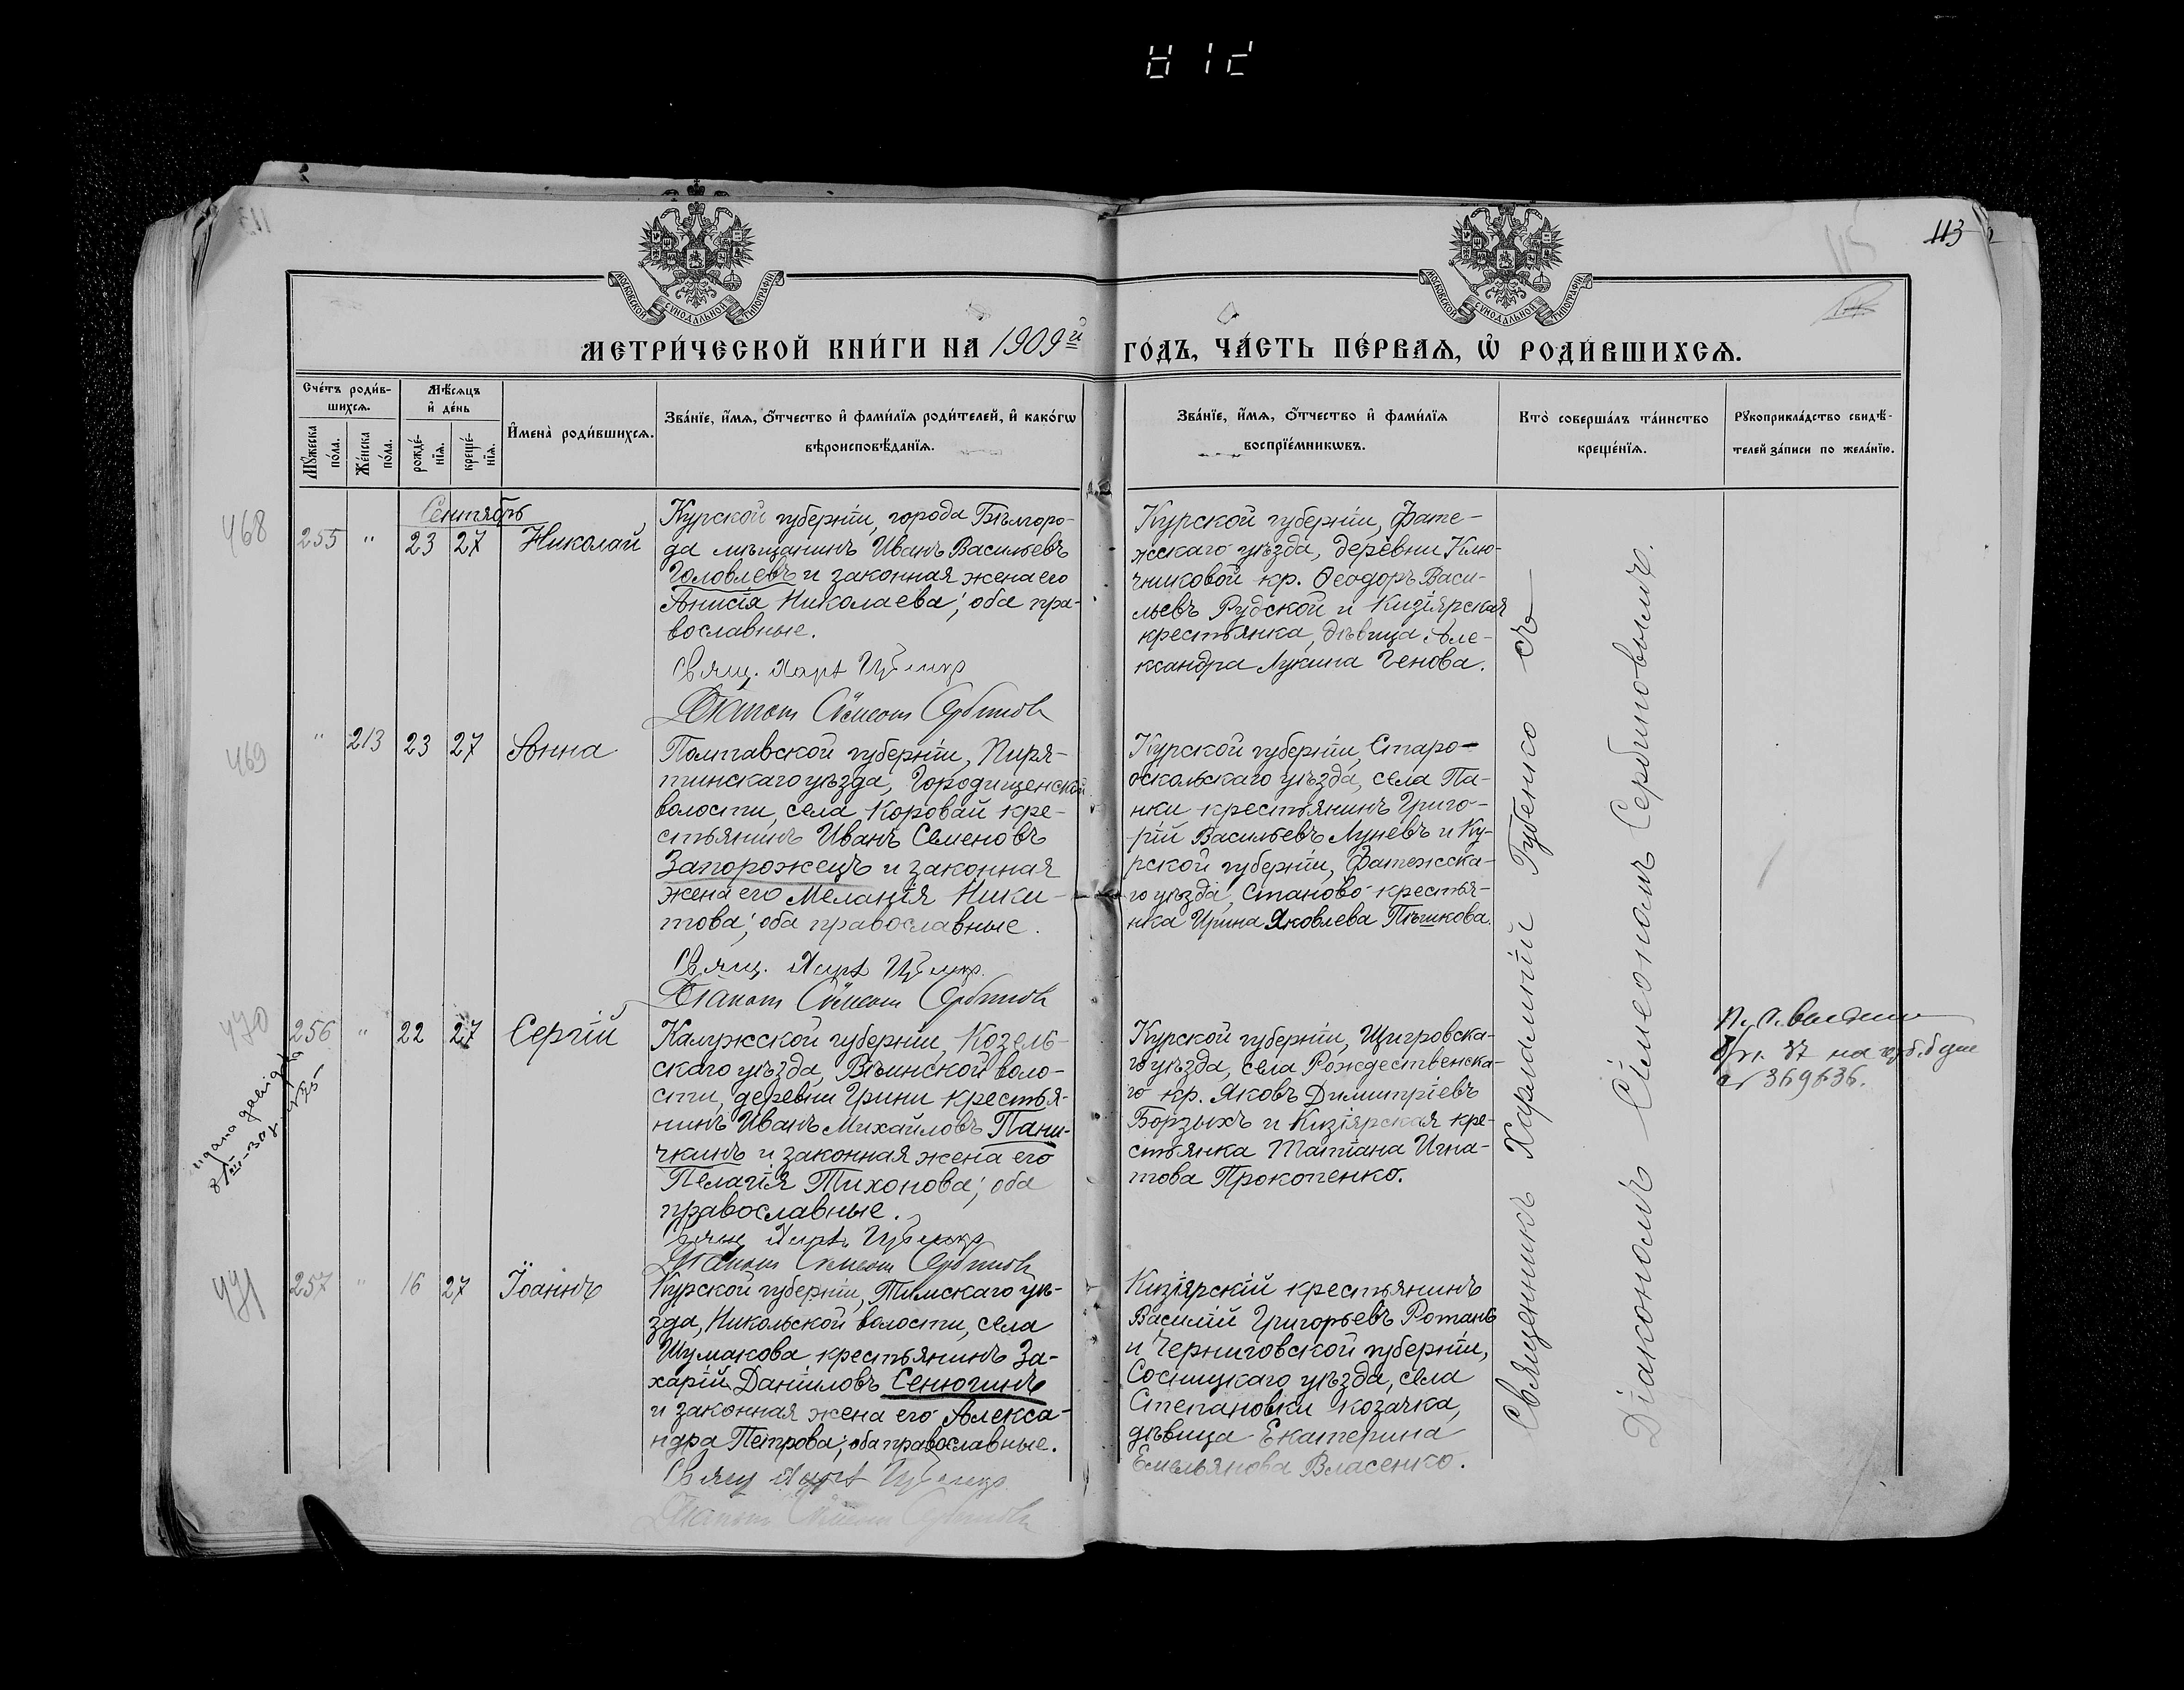 113
МОСКОВСКОЙ СѴНОДАЛЬНОЙ ТИПОГРАФІИ
МОСКОВСКОЙ СѴНОДАЛЬНОЙ ТИПОГРАФІИ
МЕТРИ́ЧЕСКОЙ КНИ́ГИ НА 1909й ГО́ДЪ, ЧА́СТЬ ПЕ́РВАѦ, Ѡ҆ РОДИ́ВШИХСѦ.
Сче́тъ роди́в-
шихсѧ.
Мꙋ́жеска по́ла.
Же́нска по́ла.
Мѣ́сѧцъ
и҆ де́нь
рожде́-
нїѧ.
креще́-
нїѧ.
И҆мена̀ роди́вшихсѧ.
Зва́нїе, и҆́мѧ, ѻ҆́тчество и҆ фами́лїѧ роди́телей, и҆ како́гѡ
вѣроисповѣ́данїѧ.
Зва́нїе, и҆́мѧ, ѻ҆́тчество и҆ фами́лїѧ
воспрїе́мникѡвъ.
Кто̀ соверша́лъ та́инство
креще́нїѧ.
Рꙋкоприкла́дство свидѣ́-
телей за́писи по жела́нїю.
Сентябрь
468
255 " 23 27 Николай
Курской губерніи, города Бѣлгоро-
да мѣщанинъ Иванъ Васильевъ
Головлевъ и законная жена его
Анисія Николаева; оба пра-
вославные.
Свящ.
Курской губерніи, Фате-
жскаго уѣзда, деревни Клю-
чниковой кр. Ѳеодоръ Васи-
льевъ Рудской и Кизіярская
крестьянка, дѣвица Але-
ксандра Лукина Генова.
469
" 213 23 27 Анна
Полтавской губерніи, Пиря-
тинскаго уѣзда, Городищенской
волости, села Коровай кре-
стьянинъ Иванъ Семеновъ
Запорожецъ и законная
жена его Меланія Ники-
това; оба православные.
Свящ.
Курской губерніи, Старо-
оскольскаго уѣзда, села Па-
нки крестьянинъ Григо-
рій Васильевъ Луневъ и Ку-
рской губерніи, Фатежска-
го уѣзда, Станово крестья-
нка Ирина Яковлева Пѣшкова.
470
256 " 22 27 Сергій
Калужской губерніи, Козель-
скаго уѣзда, Вѣинской воло-
сти, деревни Грини крестья-
нинъ Иванъ Михайловъ Пани-
чкинъ и законная жена его
Пелагія Тихонова; оба
православные.
Свящ
Курской губерніи, Щигровска-
го уѣзда, села Рождественска-
го кр. Яковъ Димитріевъ
Борзыхъ и Кизіярская кре-
стьянка Татіана Игна-
това Прокопенко.
369636.
471
257 " 16 27 Іоаннъ
Курской губерніи, Тимскаго уѣ-
зда, Никольской волости, села
Шумакова крестьянинъ За-
харій Даніиловъ Сенюгинъ
и законная жена его Алекса-
ндра Петрова; оба православные.
Свящ
Кизіярскій крестьянинъ
Василій Григорьевъ Ротань
и Черниговской губерніи,
Сосницкаго уѣзда, села
Степановки козачка,
дѣвица Екатерина
Емельянова Власенко.
Священникъ Харлампій Губенко съ
Діакономъ Сѵмеономъ Сербиновымъ.